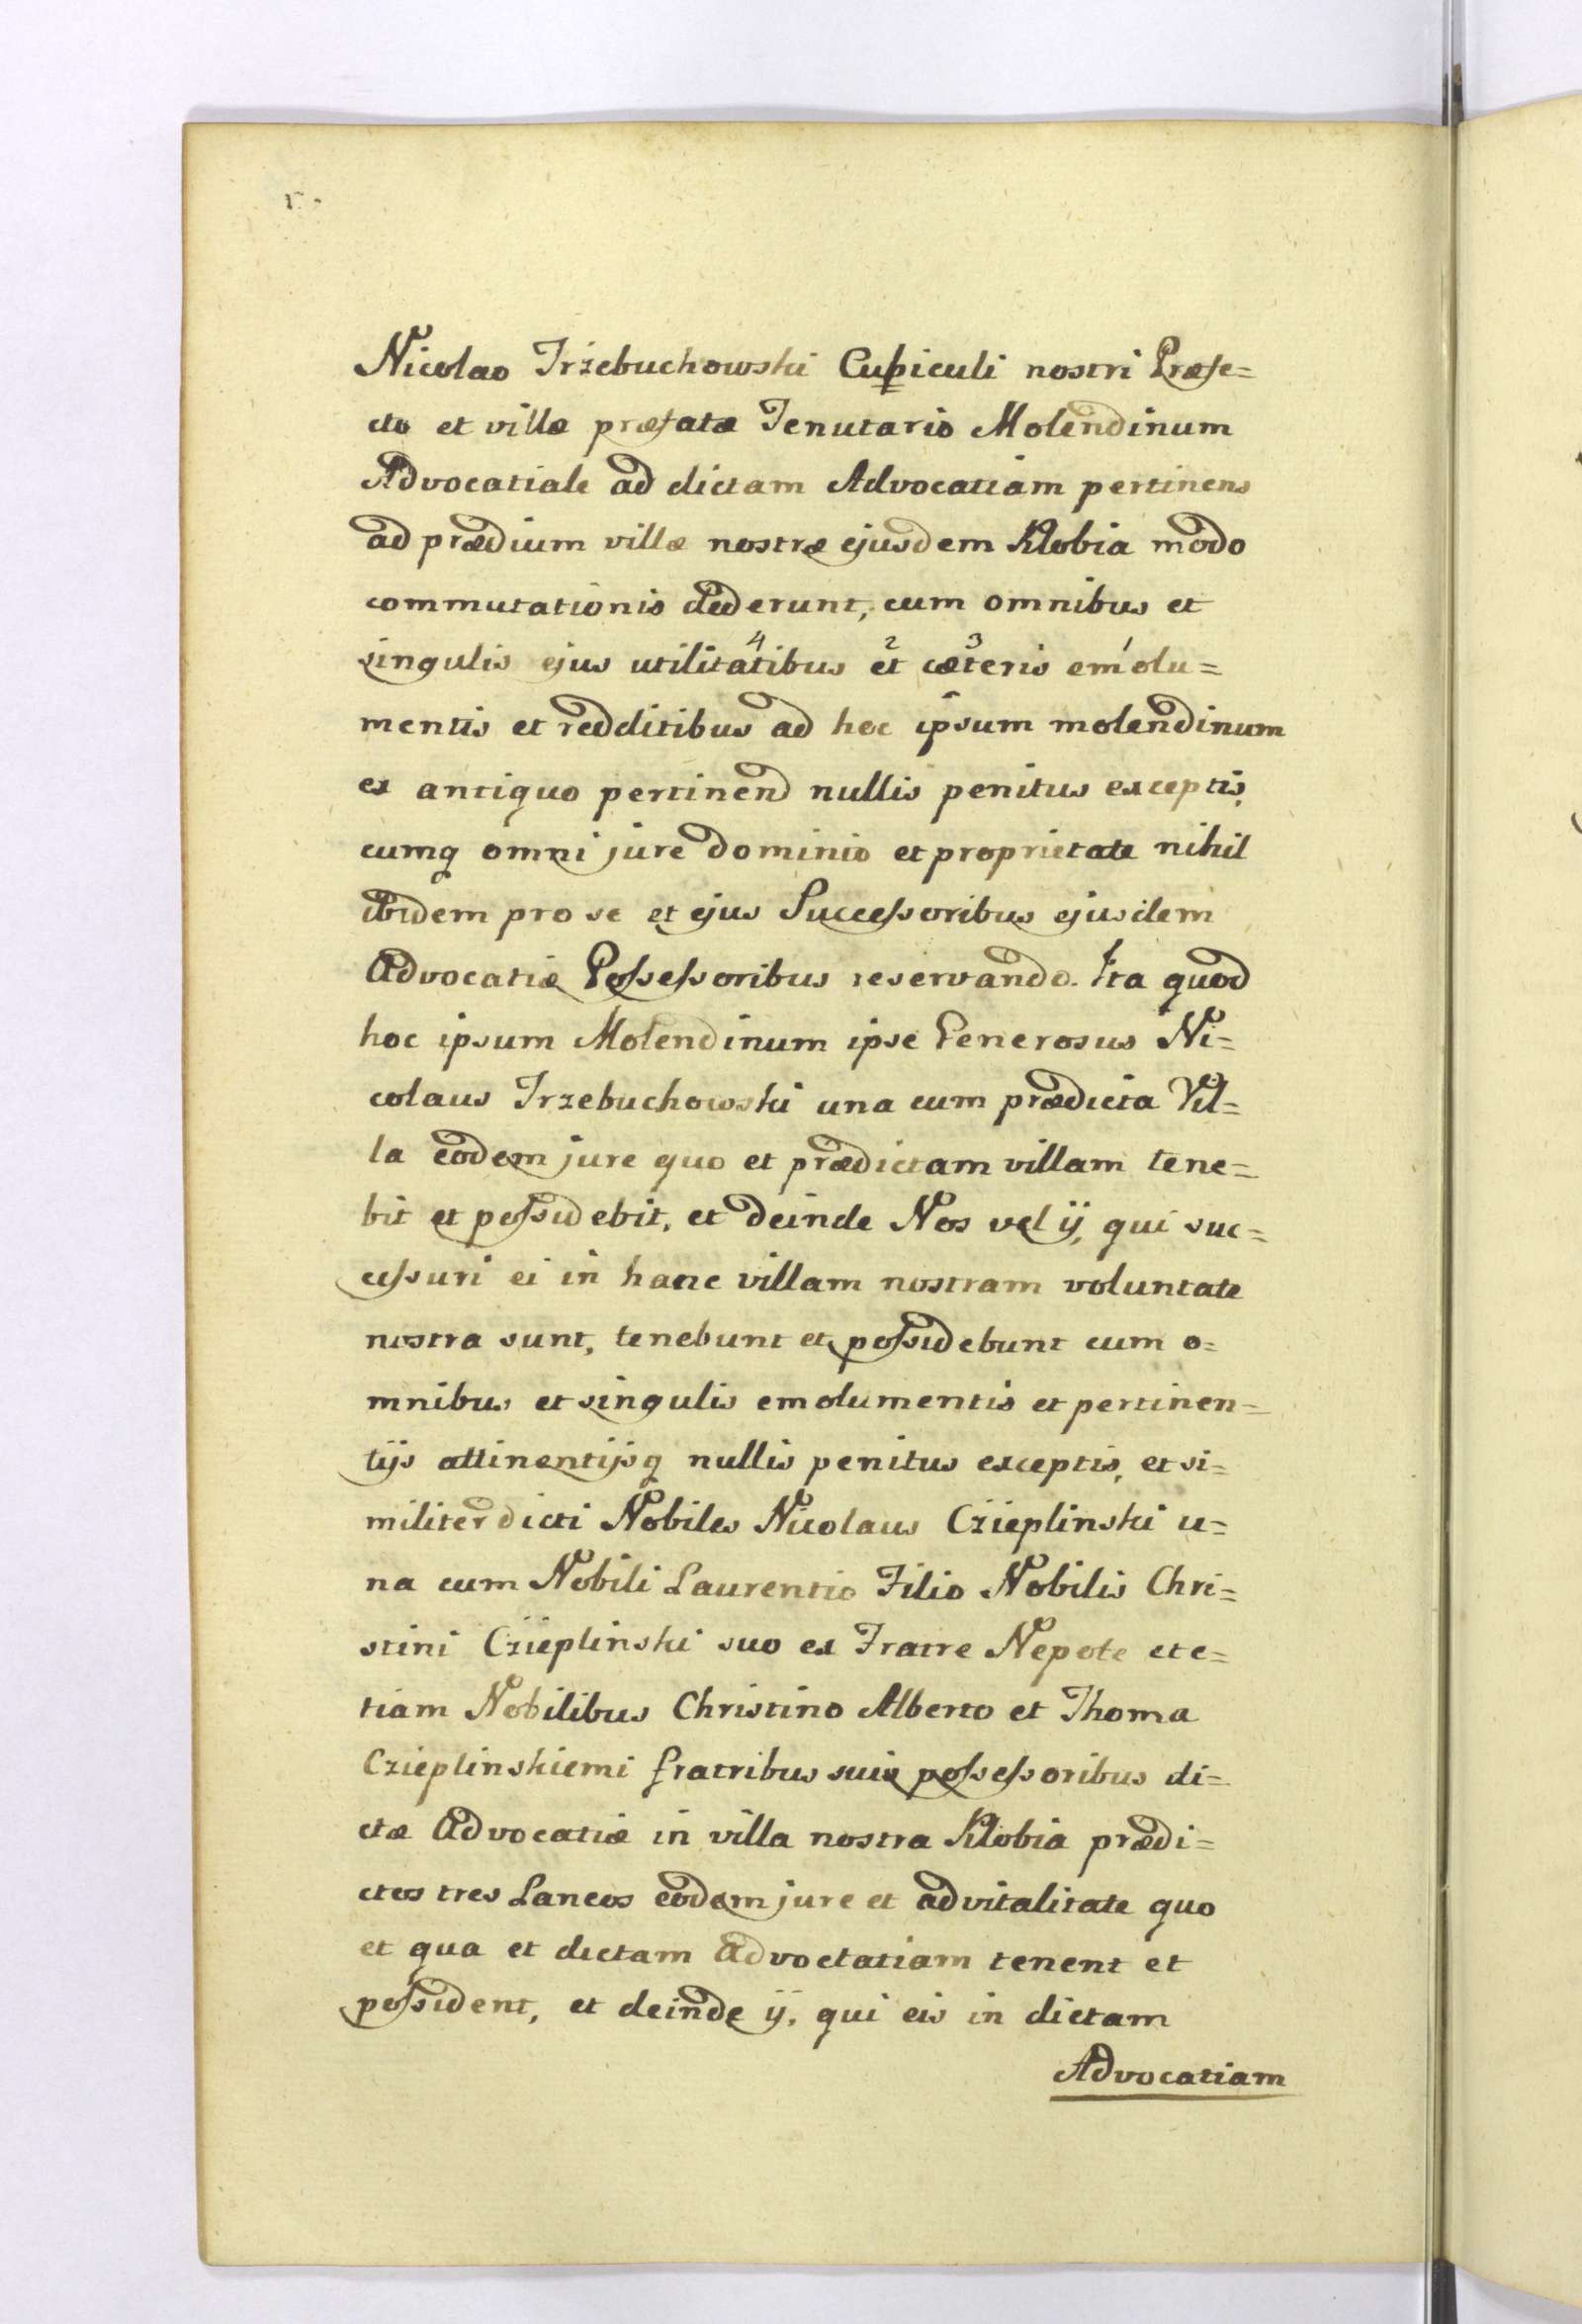 Nicolao Trzebuchowski Cupiculi nostri Præfe=
cto et villæ præfatæ Tenutario Molendinum
Advocatiale ad dictam Advocatiam pertinens
ad prædium villæ nostræ ejusdem Klobia modo
commutationis dederunt, cum omnibus et
singulis ejus utilitatibus 4 et 2 cæteris 3 emolu= 1
mentis et redditibus ad hoc ipsum molendinum
ex antiquo pertinend nullis penitus exceptis,
cumq omni jure dominio et proprietate nihil
ibidem pro se et ejus Successoribus ejusdem
Advocatiæ Possessoribus reservando. Ita quod
hoc ipsum Molendinum ipse Generosus Ni=
colaus Trzebuchowski una cum prædicta Vil=
la eodem jure quo et prædictam villam tene=
bit et possidebit, et deinde Nos vel ij, qui suc=
cessuri ei in hanc villam nostram voluntate
nostra sunt, tenebunt et possidebunt cum o=
mnibus et singulis emolumentis et pertinen=
tijs attinentijsq nullis penitus exceptis, et si=
militer dicti Nobiles Nicolaus Czieplinski u=
na cum Nobili Laurentio Filio Nobilis Chri=
stini Czieplinski suo ex Fratre Nepote et e=
tiam Nobilibus Christino Alberto et Thoma
Czieplinskiemi fratribus suis possessoribus di=
ctæ Advocatiæ in villa nostra Klobia prædi=
ctos tres Laneos eodem jure et advitalitate quo
et qua et dictam Advoctatiam tenent et
possident, et deinde ij, qui eis in dictam
Advocatiam